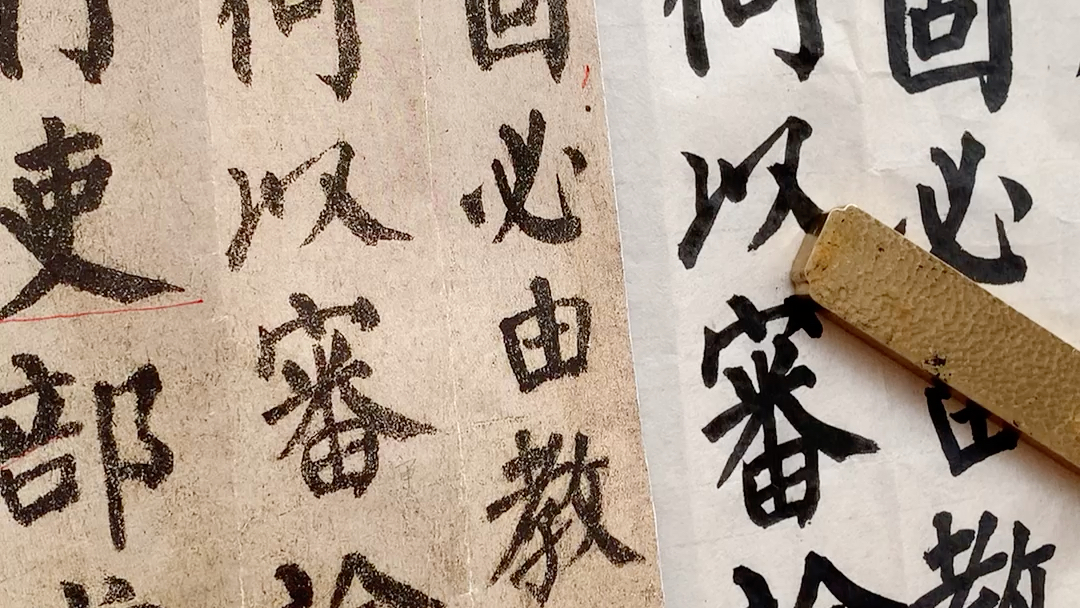 固必由教
何以審
固必由教
何以審
行吏部